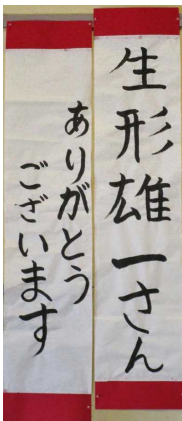 生形雄一さん
ありがとう
ございます